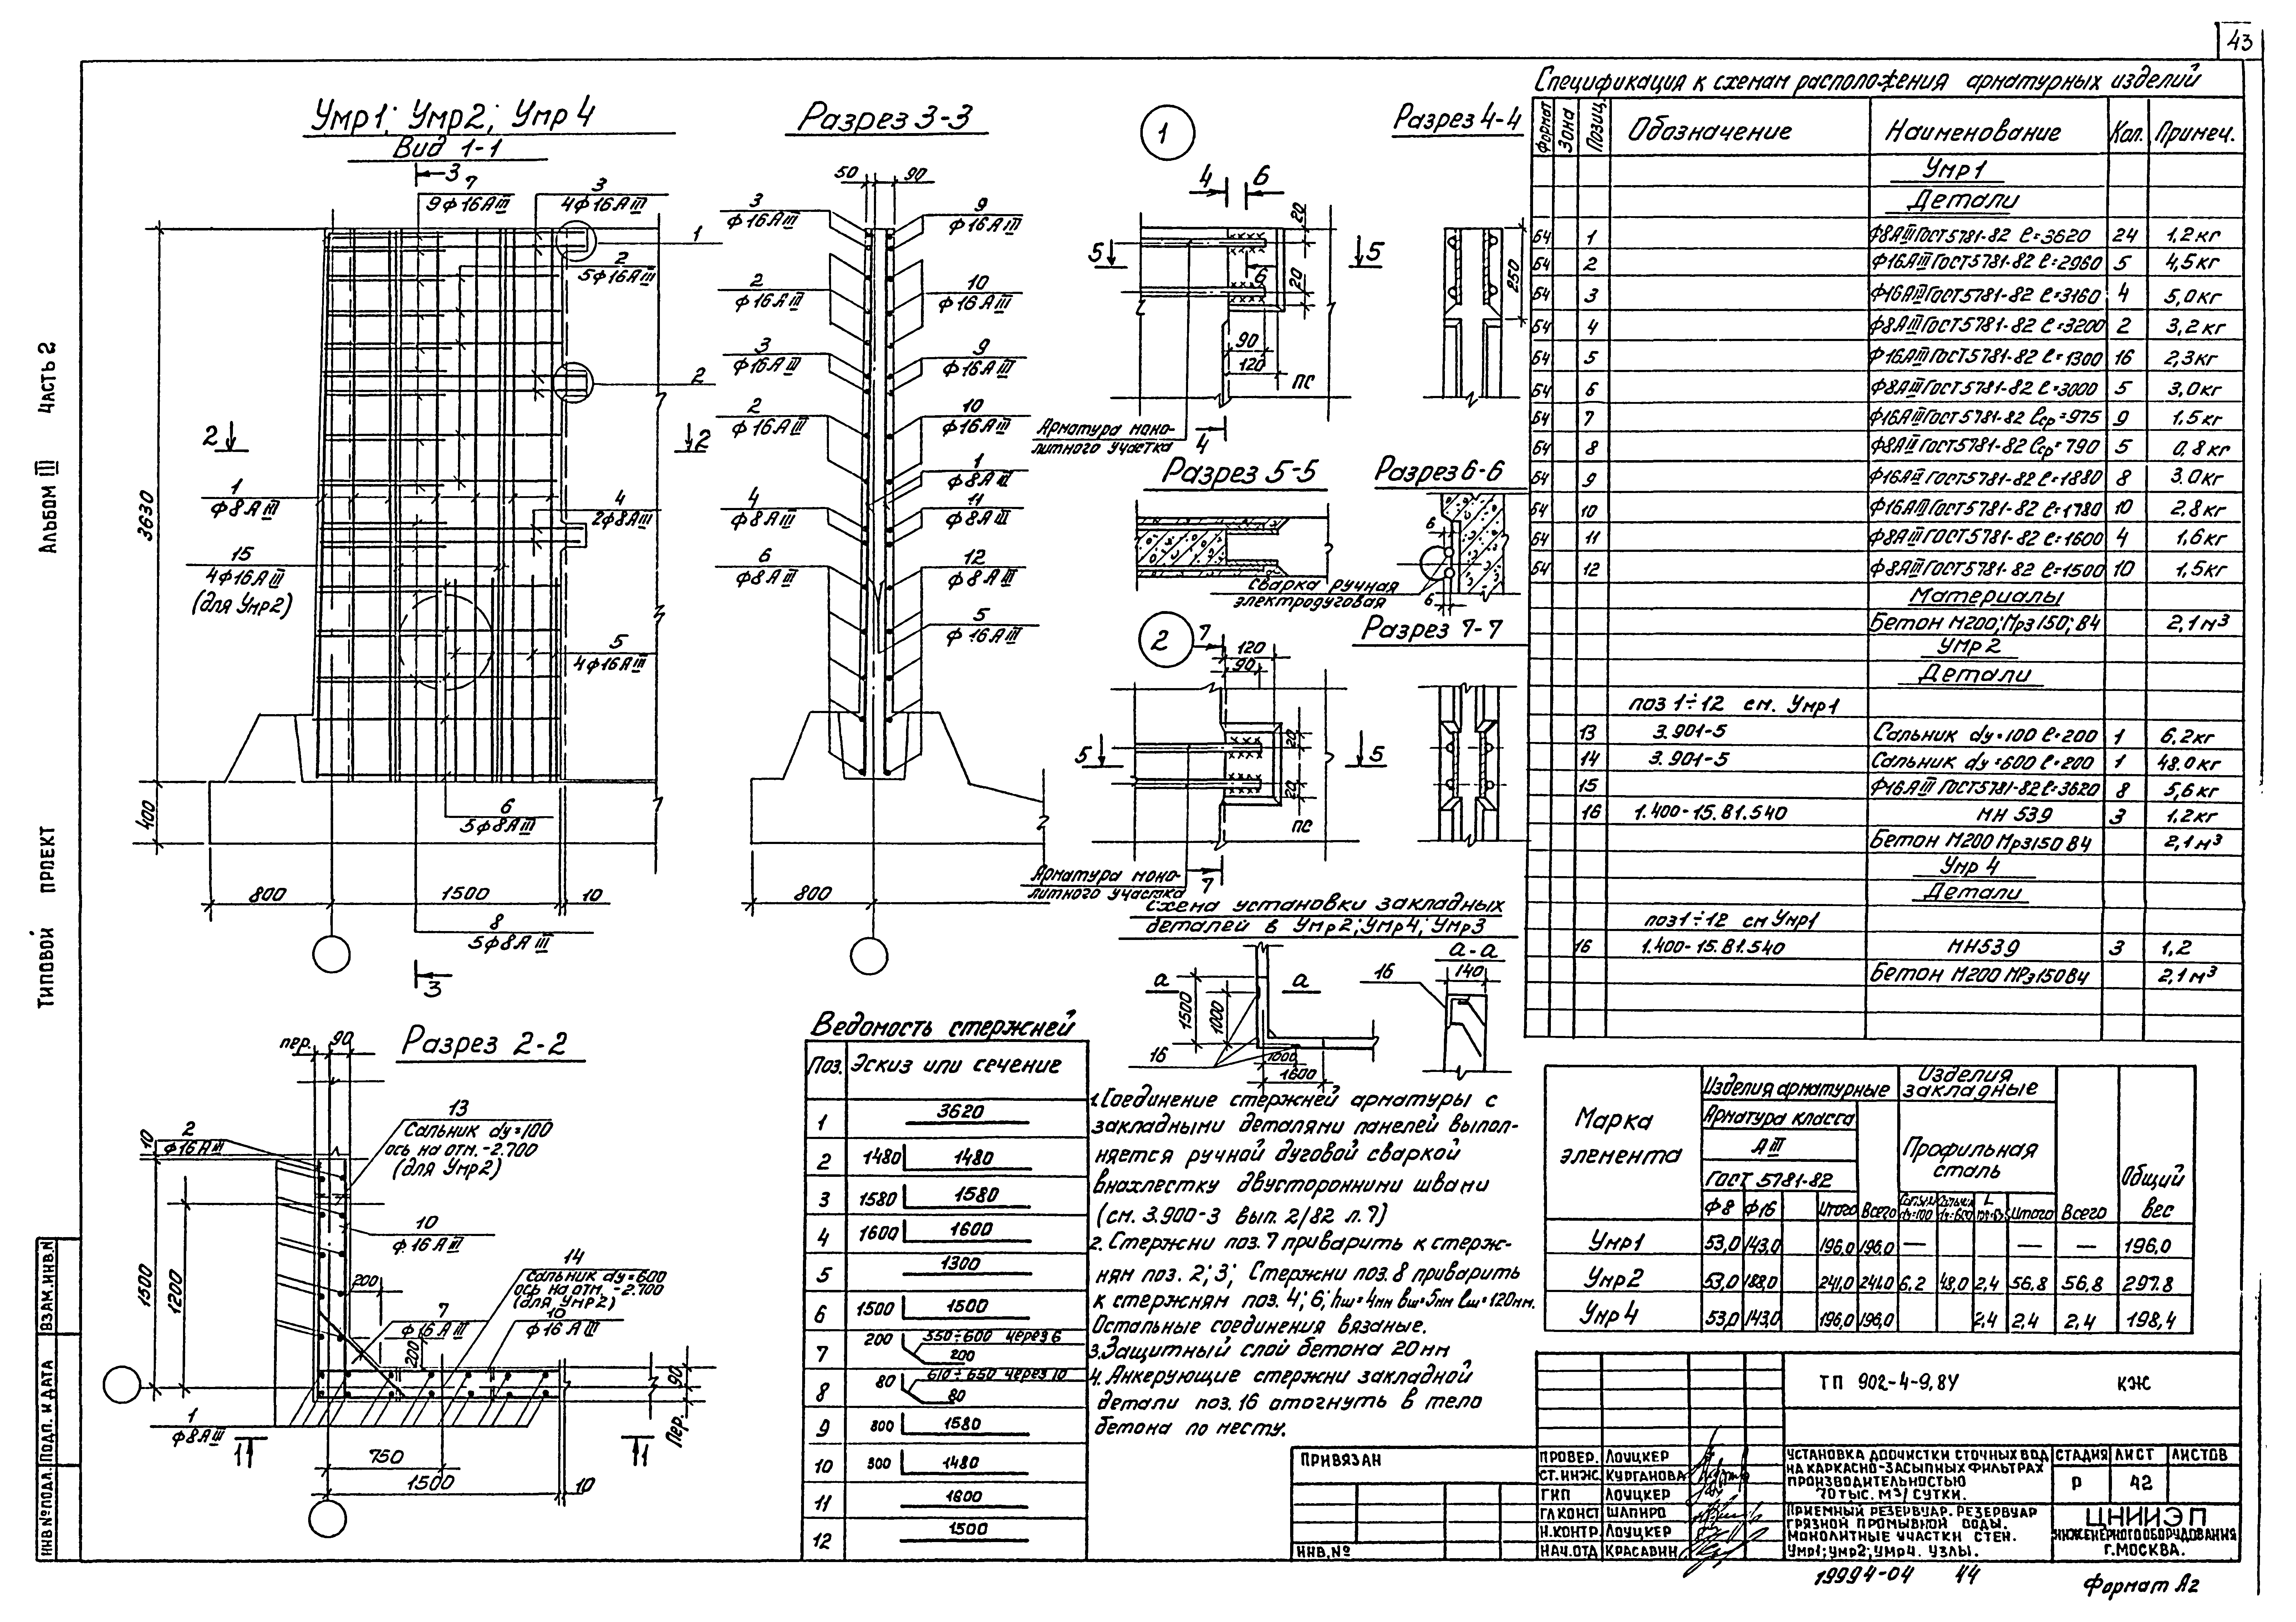 43
Типовой проект
Альбом III
Часть 2
Умр1; Умр2; Умр4
Вид 1-1
3
7
9ф16АIII
3
4ф16АIII
1
2
5ф16АIII
2
2
2
1
ф8АIII
4
2ф8АIII
15
4ф16АIII
(для Умр2)
5
4ф16АIII
6
5ф8АIII
3630
400
800
1500
10
8
5ф8АIII
3
Разрез 3-3
50
90
3
ф16АIII
9
ф16АIII
2
ф16АIII
10
ф16АIII
3
ф16АIII
9
ф16АIII
2
ф16АIII
10
ф16АIII
1
ф8АIII
4
ф8АIII
11
ф8АIII
6
ф8АIII
12
ф8АIII
5
ф16АIII
800
1
4
6
20
5
5
6
20
90
120
ПС
Арматура моно-
литного участка
4
Разрез 4-4
250
Разрез 5-5
Разрез 6-6
6
сварка ручная
электродуговая
6
2
7
120
90
20
5
5
20
ПС
Арматура моно-
литного участка
7
Разрез 7-7
Схема установки закладных
деталей в Умр2; Умр4; Умр3
а
а
1500
1000
16
1000
1600
а-а
140
16
Разрез 2-2
пер.
90
13
Сальник dу=100
ось на отм. -2.700
(для Умр2)
2
ф16АIII
10
10
ф16АIII
14
Сальник dу=600
ось на отм. -2.700
(для Умр2)
200
7
ф16АIII
10
ф16АIII
200
1500
1200
90
Пер.
1
ф8АIII
1
1
750
1500
10
Ведомость стержней
Поз. Эскиз или сечение
1 3620
2 1480 1480
3 1580 1580
4 1600 1600
5 1300
6 1500 1500
7 200 350÷600 через 6 200
8 80 610÷650 через 10 80
9 300 1580
10 300 1480
11 1600
12 1500
1. Соединение стержней арматуры с
закладными деталями панелей выпол-
няется ручной дуговой сваркой
внахлестку двусторонними швами
(см. 3.900-3 вып. 2/82 л. 9)
2. Стержни поз. 7 приварить к стерж-
ням поз. 2; 3; Стержни поз. 8 приварить
к стержням поз. 4; 6; hш=4мм bш=5мм lш=120мм.
Остальные соединения вязаные.
3. Защитный слой бетона 20мм
4. Анкерующие стержни закладной
детали поз. 16 отогнуть в тело
бетона по месту.
Спецификация к схемам расположения арматурных изделий
Формат Зона Позиц. Обозначение Наименование Кол. Примеч.
Умр1
Детали
Б4 1 ф8АIII ГОСТ5781-82 ℓ=3620 24 1,2кг
Б4 2 ф16АIII ГОСТ5781-82 ℓ=2960 5 4,5кг
Б4 3 ф16АIII ГОСТ5781-82 ℓ=3160 4 5,0кг
Б4 4 ф8АIII ГОСТ5781-82 ℓ=3200 2 3,2кг
Б4 5 ф16АIII ГОСТ5781-82 ℓ=1300 16 2,3кг
Б4 6 ф8АIII ГОСТ5781-82 ℓ=3000 5 3,0кг
Б4 7 ф16АIII ГОСТ5781-82 ℓср=975 9 1,5кг
Б4 8 ф8АIII ГОСТ5781-82 ℓср=790 5 0,8кг
Б4 9 ф16АIII ГОСТ5781-82 ℓ=1880 8 3.0кг
Б4 10 ф16АIII ГОСТ5781-82 ℓ=1780 10 2,8кг
Б4 11 ф8АIII ГОСТ5781-82 ℓ=1600 4 1,6кг
Б4 12 ф8АIII ГОСТ5781-82 ℓ=1500 10 1,5кг
Материалы
Бетон М200; Мрз150; В4 2,1м³
Умр2
Детали
поз 1÷12 см. Умр1
13 3.901-5 Сальник dу=100 ℓ=200 1 6,2кг
14 3.901-5 Сальник dу=600 ℓ=200 1 48.0кг
15 ф16АIII ГОСТ5781-82 ℓ=3620 8 5,6кг
16 1.400-15.В1.540 МН 539 3 1,2кг
Бетон М200 Мрз150 В4 2,1м³
Умр 4
Детали
поз 1÷12 см Умр1
16 1.400-15.В1.540 МН539 3 1,2
Бетон М200 МРз150В4 2,1м³
Марка элемента
Изделия арматурные
Изделия закладные
Арматура класса
АIII
ГОСТ 5781-82
Профильная сталь
Общий вес
ф8 ф16 Итого Всего Сальник dу=100 Сальник dу=600 Итого Всего
Умр1 53,0 143,0 196,0 196,0 — — — 196,0
Умр2 53,0 188,0 241,0 241,0 6.2 48,0 2,4 56,8 56,8 297.8
Умр4 53,0 143,0 196,0 196,0 2,4 2,4 2,4 198,4
ТП 902-4-9.84 КЖ
Привязан
Инв.№
Провер. Лоуцкер
Ст.инж. Курганова
ГИП Лоуцкер
Гл.конст Шапиро
Н.контр. Лоуцкер
Нач.отд Красавин
Установка доочистки сточных вод
на каркасно-засыпных фильтрах
производительностью
70 тыс. м³/сутки.
Приемный резервуар. Резервуар
грязной промывной воды.
Монолитные участки стен.
Умр1; Умр2; Умр4. Узлы.
Стадия Лист Листов
Р 42
ЦНИИЭП
инженерного оборудования
г. Москва.
Взам.инв.№
Подп. и дата
Инв № подл.
19994-04 44
Формат А2